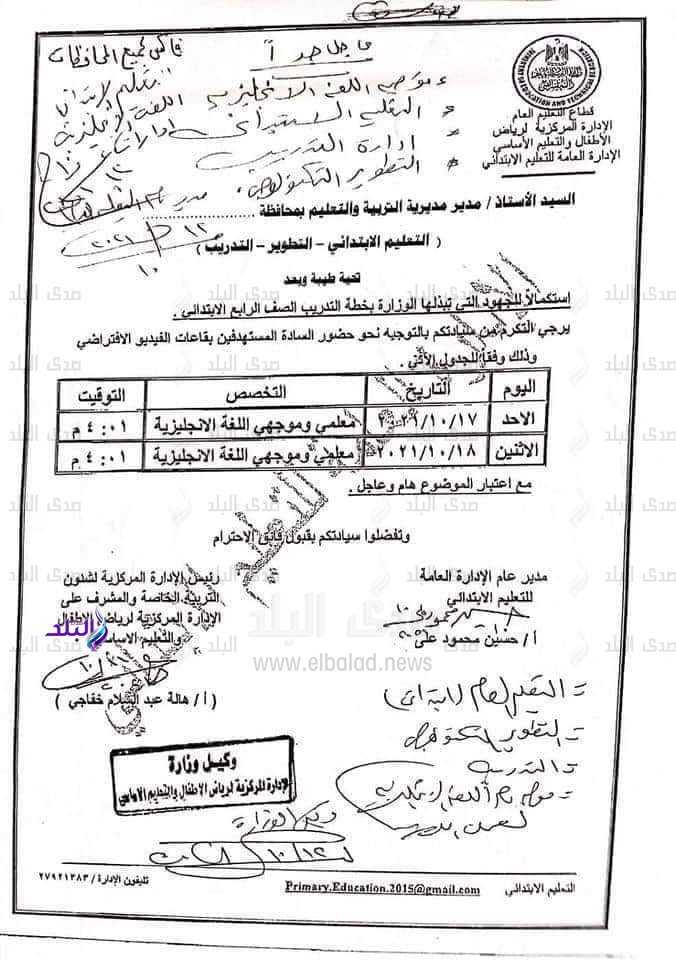 فاكس لجميع المحافظات
عاجل جداً
موجه اللغة الانجليزية
التعليم الابتدائي
ادارة التدريب
التطوير التكنولوجي
MINISTRY OF EDUCATION AND TECHNICAL EDUCATION
قطاع التعليم العام
الإدارة المركزية لرياض
الأطفال والتعليم الأساسي
الإدارة العامة للتعليم الابتدائي
السيد الأستاذ / مدير مديرية التربية والتعليم بمحافظة ......................
( التعليم الابتدائي – التطوير – التدريب )
تحية طيبة وبعد
استكمالاً للجهود التي تبذلها الوزارة بخطة التدريب الصف الرابع الابتدائي .
يرجي التكرم من سيادتكم بالتوجيه نحو حضور السادة المستهدفين بقاعات الفيديو الافتراضي
وذلك وفقاً للجدول الآتي .
اليوم التاريخ التخصص التوقيت
الاحد ٢٠٢١/١٠/١٧ معلمي وموجهي اللغة الانجليزية ٤:٠١ م
الاثنين ٢٠٢١/١٠/١٨ معلمي وموجهي اللغة الانجليزية ٤:٠١ م
مع اعتبار الموضوع هام وعاجل .
وتفضلوا سيادتكم بقبول فائق الاحترام
مدير عام الإدارة العامة
للتعليم الابتدائي
أ/ حسين محمود على
رئيس الإدارة المركزية لشئون
التربية الخاصة والمشرف على
الإدارة المركزية لرياض الاطفال
والتعليم الاساسي
( أ / هالة عبد السلام خفاجي )
صدى البلد
www.elbalad.news
التعليم العام (ابتدائي)
التطوير التكنولوجي
التدريب
موجه عام اللغة الانجليزية
وكيل وزارة
الإدارة المركزية لرياض الاطفال والتعليم الاساسي
وكيل الوزارة
التعليم الابتدائي
Primary.Education.2015@gmail.com
تليفون الإدارة / ٢٧٩٢١٣٨٣